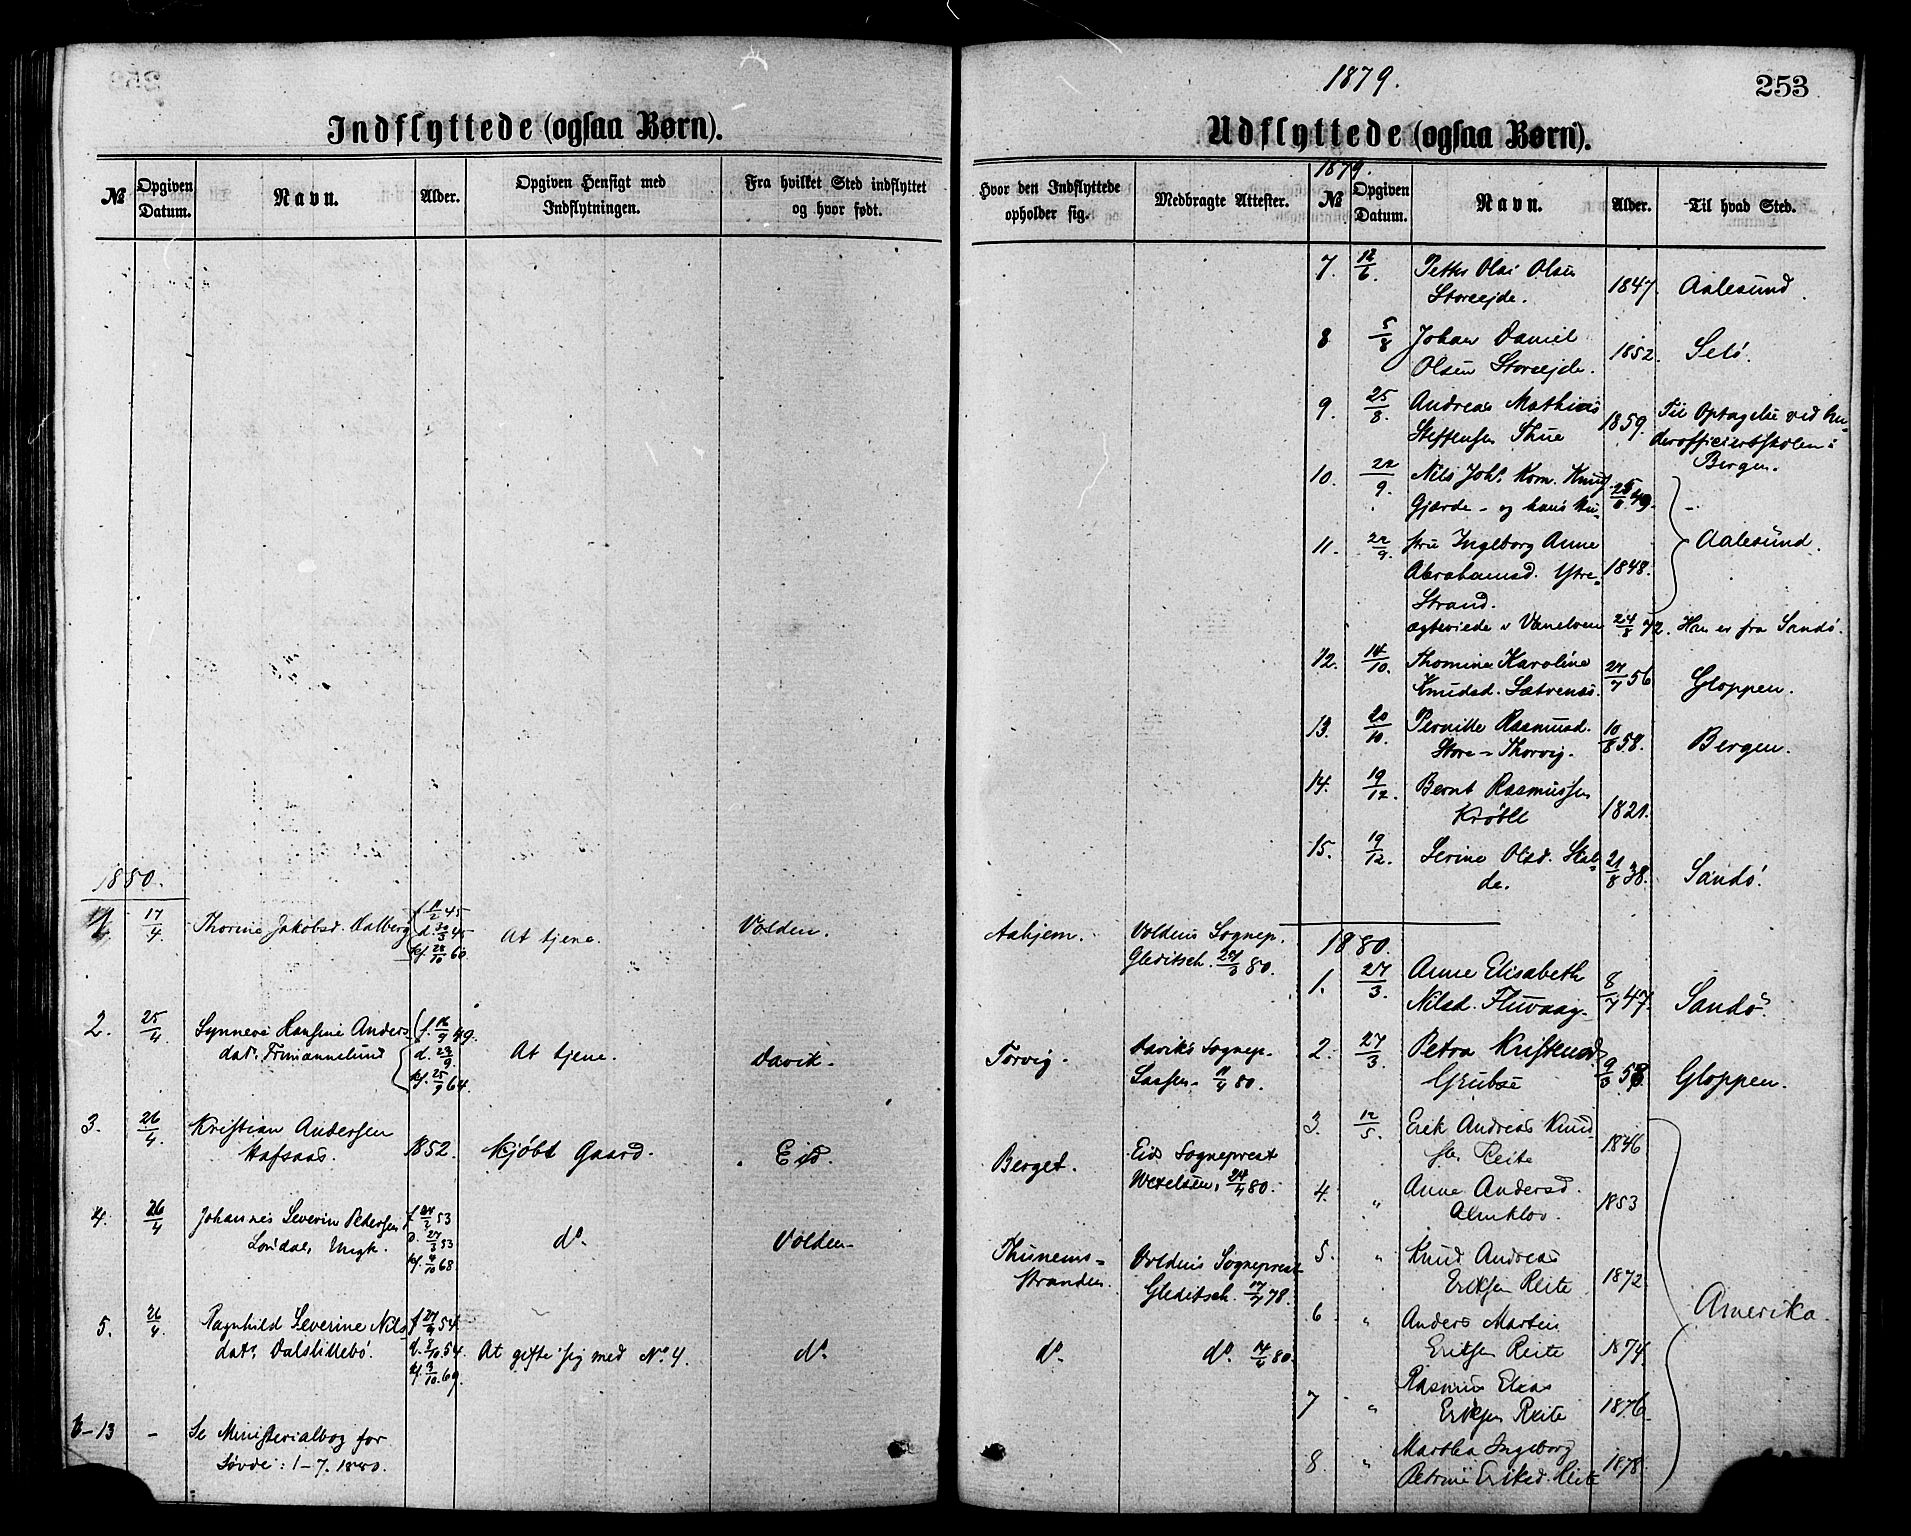 1879.
253
Indflyttede (ogsaa Børn).
Udflyttede (ogsaa Børn).
№
Opgiven Datum.
Navn.
Alder.
Opgiven Hensigt med Indflytningen.
Fra hvilket Sted indflyttet og hvor født.
Hvor den Indflyttede opholder sig.
Medbragte Attester.
1879.
№
Opgiven Datum.
Navn.
Alder.
Til hvad Sted.
1880.
1 17/4 Thorine Jakobsd. Aalberg f 11/2 45 At tjene. Volden. Aahjem. Voldens Sognep.
d. 30/3 45 Gleditsch. 29/3 80.
kf. 28/10 60
2. 25/4 Synneve Hansine Anders f. 16/9 49. At tjene. Davik. Torvig. Daviks Sognep.
datr d. 23/9
kf. 25/9 64. 11/4 80.
3. 26/4 Kristian Andersen
Hafsaas. 1852. Kjøbt Gaard. Eid. Berget. Eids Sogneprest
Wexelsen, 24/4 80.
4. 26/4 Johannes Severin Pedersen f 24/2 53 do. Volden. Thunems-
Ungk. d. 27/3 53 stranden. Voldens Sogneprest
kf. 4/10 68 Gleditsch. 17/4 78.
5. 26/4 Ragnhild Severine Nils f 27/9 54.
datr Dalslittebø. d. 8/10 54. At gifte sig med No. 4. do. do. do. 14/4 80.
kf. 3/10. 69.
6-13 - Se Ministerialbog for
Søvde: 1-7. 1880.
7. 12/6 Petter Olai Olsen
Storeejde. 1847. Aalesund.
8 5/8 Johan Daniel
Olsen Storeejde. 1852. Selø.
9. 25/8. Andreas Mathias Til Optagelse ved Un-
Steffensen Thue 1859. derofficiersskolen i
Bergen.
10. 22/9. Nils Johs Korn. Knuds.
Gjærde - og hans Hu- 49.
11. 22/9 stru Ingeborg Anne Aalesund.
Abrahamsd. Ytre- 1848.
Strand.
ægteviede i Vanelven 24/8 72. Han er fra Sandø.
12. 14/10. Thomine Karoline
Knudsd. Sætrenes. 27/7 56 Gloppen.
13. 20/10. Pernille Rasmusd. 10/8 58.
Store-Thorvig. Bergen.
14. 19/12. Bernt Rasmussen
Krøbll 1821.
15. 19/12. Serine Olsd. Skel-
de. 21/8 38. Sandø.
1880.
1. 27/3. Anne Elisabeth
Nilsd. Fluvaag. 8/7 47. Sandø.
2. 27/3. Petra Kristensd. 9/3
Grubse Gloppen.
3. 12/5. Erik Andreas Knud
sen Reite 1846
4. " Anne Andersd.
Almklov. 1853
5. " Knud Andreas
Eriksen Reite 1872.
Amerika.
6 " Anders Martin
Eriksen Reite 1874.
7 " Rasmus Elias
Eriksen Reite 1876.
8. " Martha Ingeborg
Petrine Eriksd. Reite 1878.